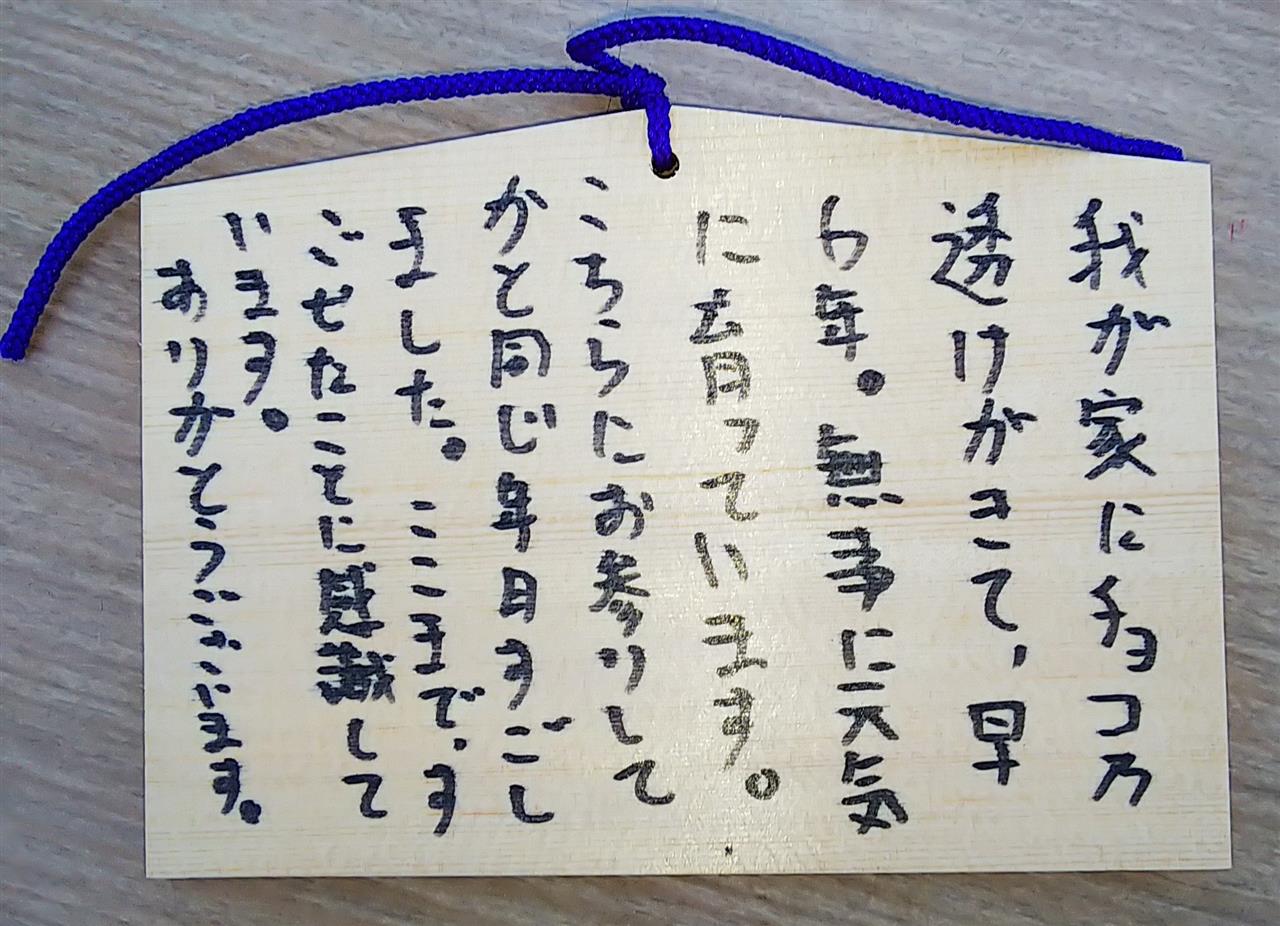 我が家にチョコ乃
透けがきて，早
６年。無事に元気
に育っています。
こちらにお参りして
かと同じ年月すごし
ました。ここまで、す
ごせたことに感謝して
います。
ありがとうございます。